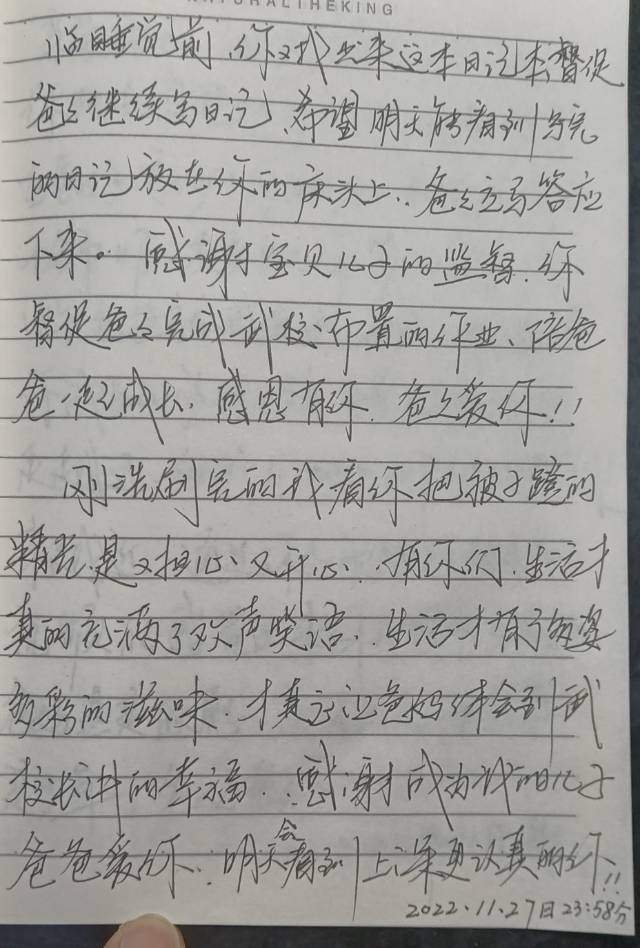 NATURALTHEKING
临睡觉前,你又找出来这本日记本,督促
爸爸继续写日记,希望明天能看到写完
的日记放在你的床头上,爸爸立马答应
下来。感谢宝贝儿子的监督,你
督促爸爸完成武校布置的作业、陪爸
爸一起成长,感恩有你,爸爸爱你!!
刚洗刷完的我看你把被子蹬的
精光,是又担心又开心,有你们,生活才
真的充满了欢声笑语,生活才有了多姿
多彩的滋味,才真正让爸妈体会到武
校长讲的幸福,感谢成为我的儿子
爸爸爱你,明天会看到上课更认真的你!!
2022.11.27日23:58分